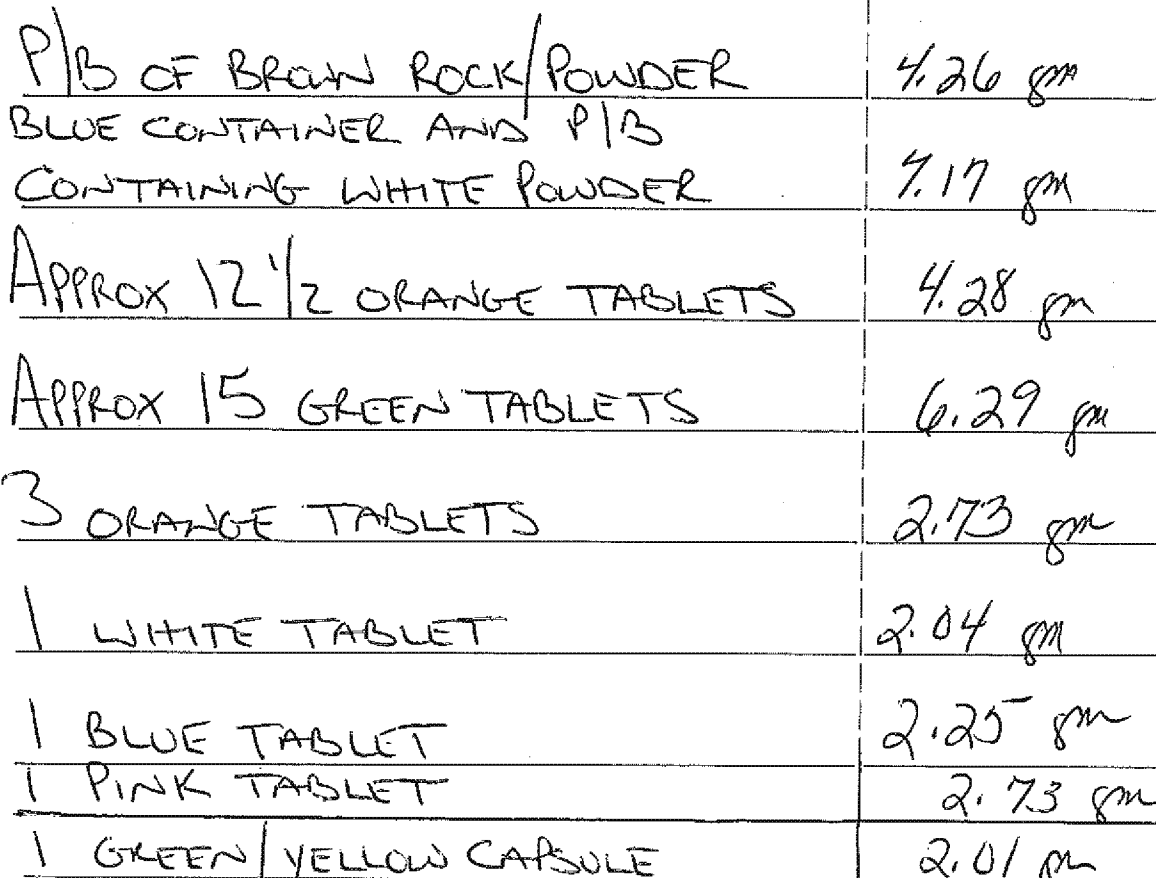 P/B OF BROWN ROCK/POWDER 4.26 gm
BLUE CONTAINER AND P/B
CONTAINING WHITE POWDER 4.17 gm
APPROX 12 1/2 ORANGE TABLETS 4.28 gm
APPROX 15 GREEN TABLETS 6.29 gm
3 ORANGE TABLETS 2.73 gm
1 WHITE TABLET 2.04 gm
1 BLUE TABLET 2.25 gm
1 PINK TABLET 2.73 gm
1 GREEN/YELLOW CAPSULE 2.01 gm